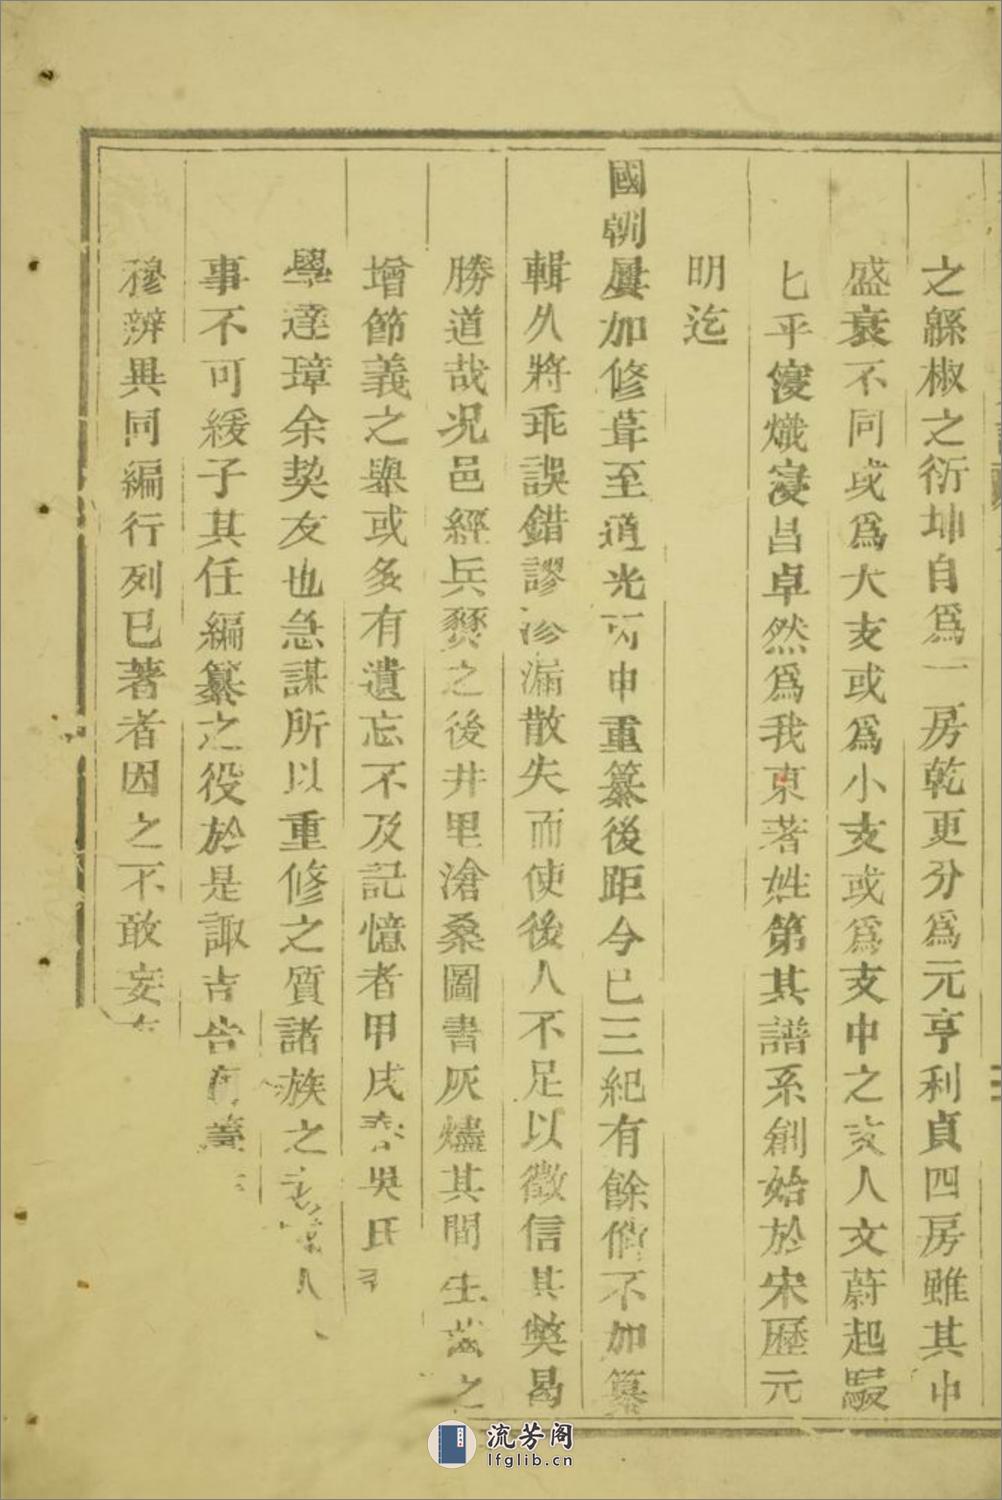 之緜椒之衍坤自爲一房乾更分爲元亨利貞四房雖其中
盛衰不同或爲大支或爲小支或爲支中之支人文蔚起駸
七乎寖熾寖昌卓然爲我東著姓第其譜系創始於宋歷元
明迄
國朝屢加修葺至道光丙申重纂後距今已三紀有餘倘不加纂
輯久將乖誤錯謬滲漏散失而使後人不足以徵信其獘曷
勝道哉况邑經兵燹之後井里滄桑圖書灰燼其間生齒之
增節義之舉或多有遺忘不及記憶者甲戌春吳氏
學達璋余契友也急謀所以重修之質諸族之人
事不可緩子其任編纂之役於是諏吉告
穆辨異同編行列已著者因之不敢妄
流芳阁
lfglib.cn